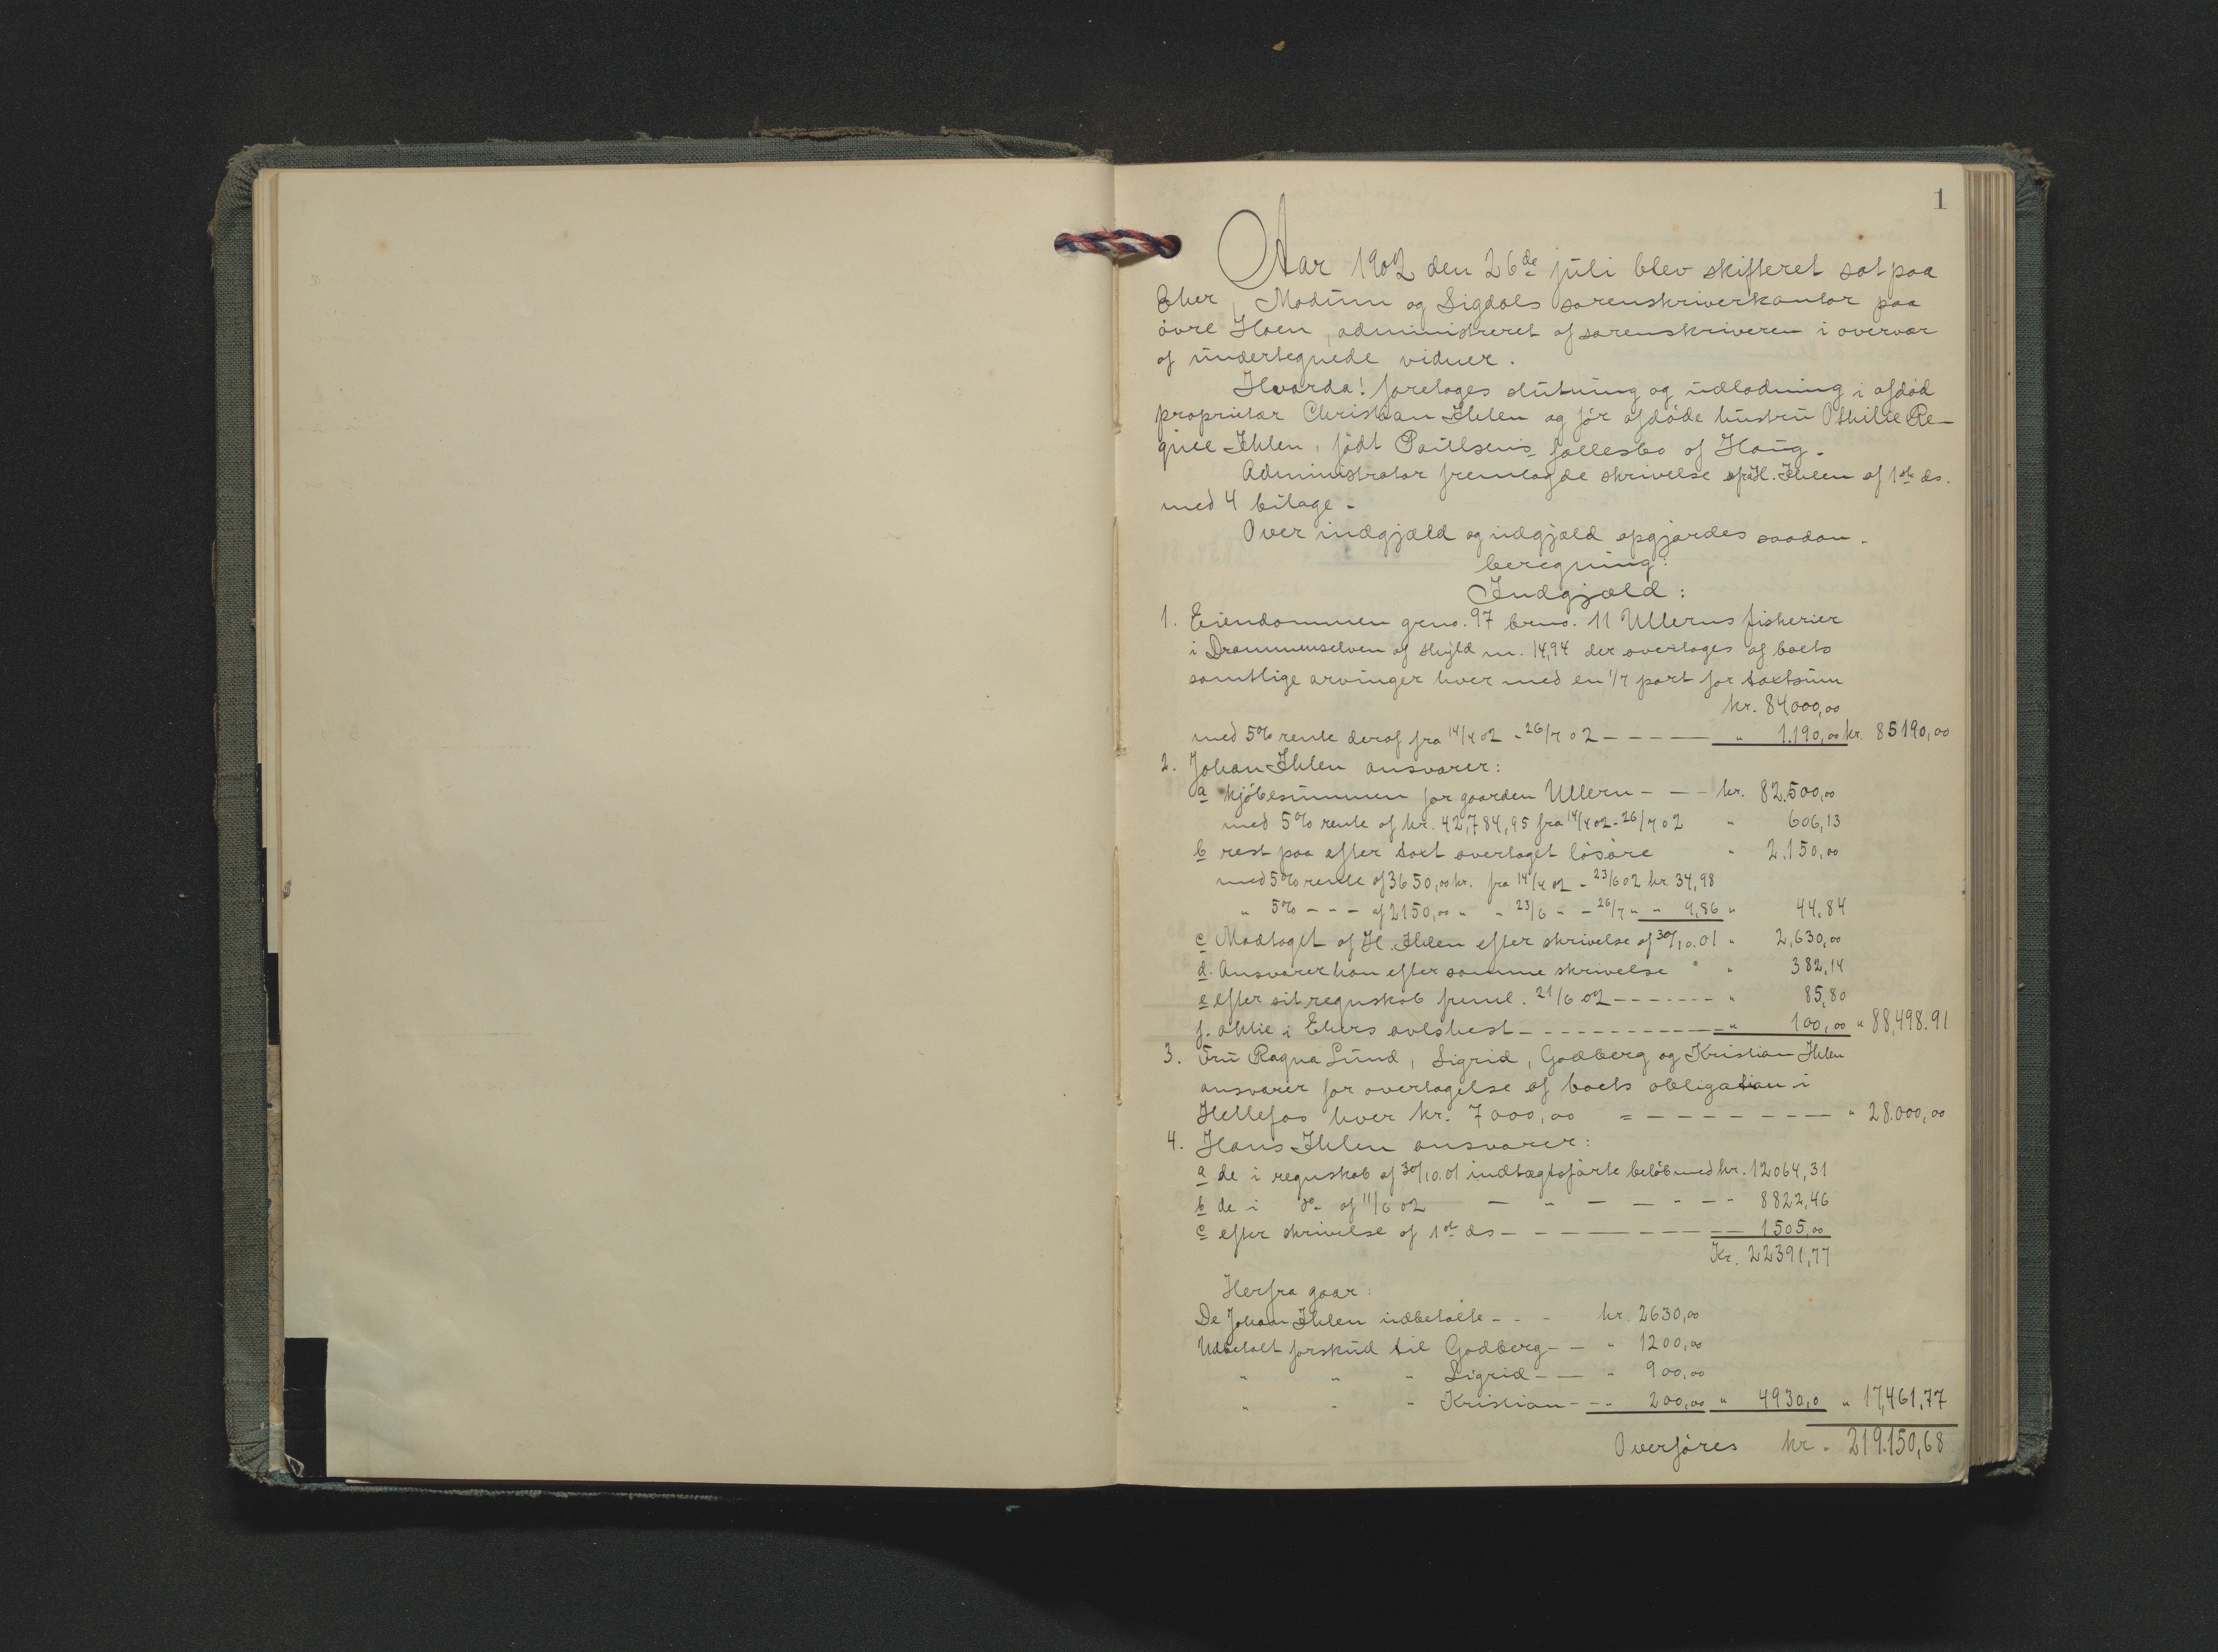 1
Aar 1902 den 26de juli blev skifteret sat paa
Eker, Modum og Sigdals sorenskriverkontor paa
øvre Hoen, administreret af sorenskriveren i overvær
af undertegnede vidner.
Hvorda! foretoges slutning og udlodning i afdød
proprietær Christian Ihlen og før afdøde hustru Othilie Re-
gine Ihlen, født Paulsens fællesbo af Haug.
Administrator fremlagde skrivelse fra H. Ihlen af 1ste ds.
med 4 bilage.
Over indgjæld og udgjæld opgjordes saadan
beregning:
Indgjæld:
1. Eiendommen gno. 97 bno. 11 Ullerns fiskerier
i Drammenselven af skyld m. 14,94 der overtages af boets
samtlige arvinger hver med en 1/7 part for taxtsum
kr. 84000,00
med 5% rente deraf fra 14/4 02 - 26/7 02 - - - - - " 1.190,00 kr. 85190,00
2. Johan Ihlen ansvarer:
a kjøbesummen for gaarden Ullern - - - kr. 82.500,00
med 5% rente af kr. 42,784,95 fra 14/4 02 - 26/7 02 " 606,13
b rest paa efter taxt overtaget løsøre " 2.150,00
med 5% rente af 3650,00 kr. fra 14/4 02 - 23/6 02 kr. 34,98
" 5% - - - af 2150,00 " " 23/6 " - 26/7 " " 9,86 " 44,84
c Modtaget af H. Ihlen efter skrivelse af 30/10.01 " 2,630,00
d. Ansvarer han efter samme skrivelse " " 382,14
e efter sit regnskab freml. 21/6 02 - - - - - - - " 85,80
f. aktie i Ekers avlshest - - - - - - - - - - - " 100,00 " 88,498.91
3. Fru Ragna Lund, Sigrid, Godberg og Kristian Ihlen
ansvarer for overtagelse af boets obligation i
Hellefos hver kr. 7000,00 = - - - - - - - - " 28.000,00
4. Hans Ihlen ansvarer:
a de i regnskab af 30/10.01 indtægtsførte beløb med kr. 12064,31
b de i do af 11/6 02 - " - - - - - 8822,46
c efter skrivelse af 1st ds - - - - - - - - - 1505,00
Kr. 22391,77
Herfra gaar:
De Johan Ihlen udbetalte - - - kr. 2630,00
Udbetalt forskud til Godberg - - " 1200,00
" " " Sigrid - - " 900,00
" " " Kristian - - " 200,00 " 4930,0 " 17,461,77
Overføres kr. 219.150,68